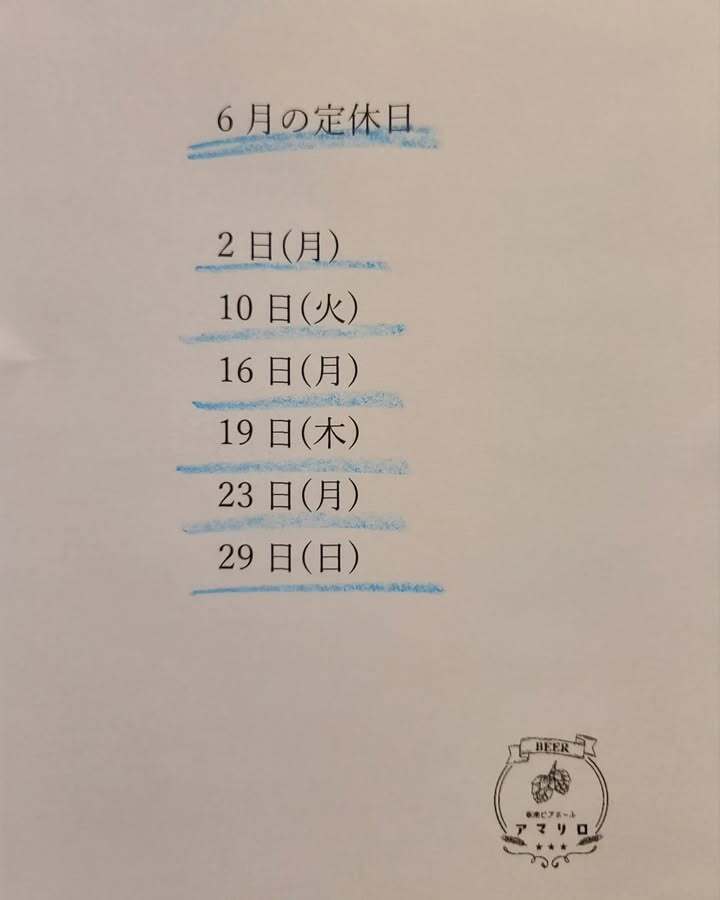 6 月の定休日
2 日(月)
10 日(火)
16 日(月)
19 日(木)
23 日(月)
29 日(日)
BEER
アマリロ